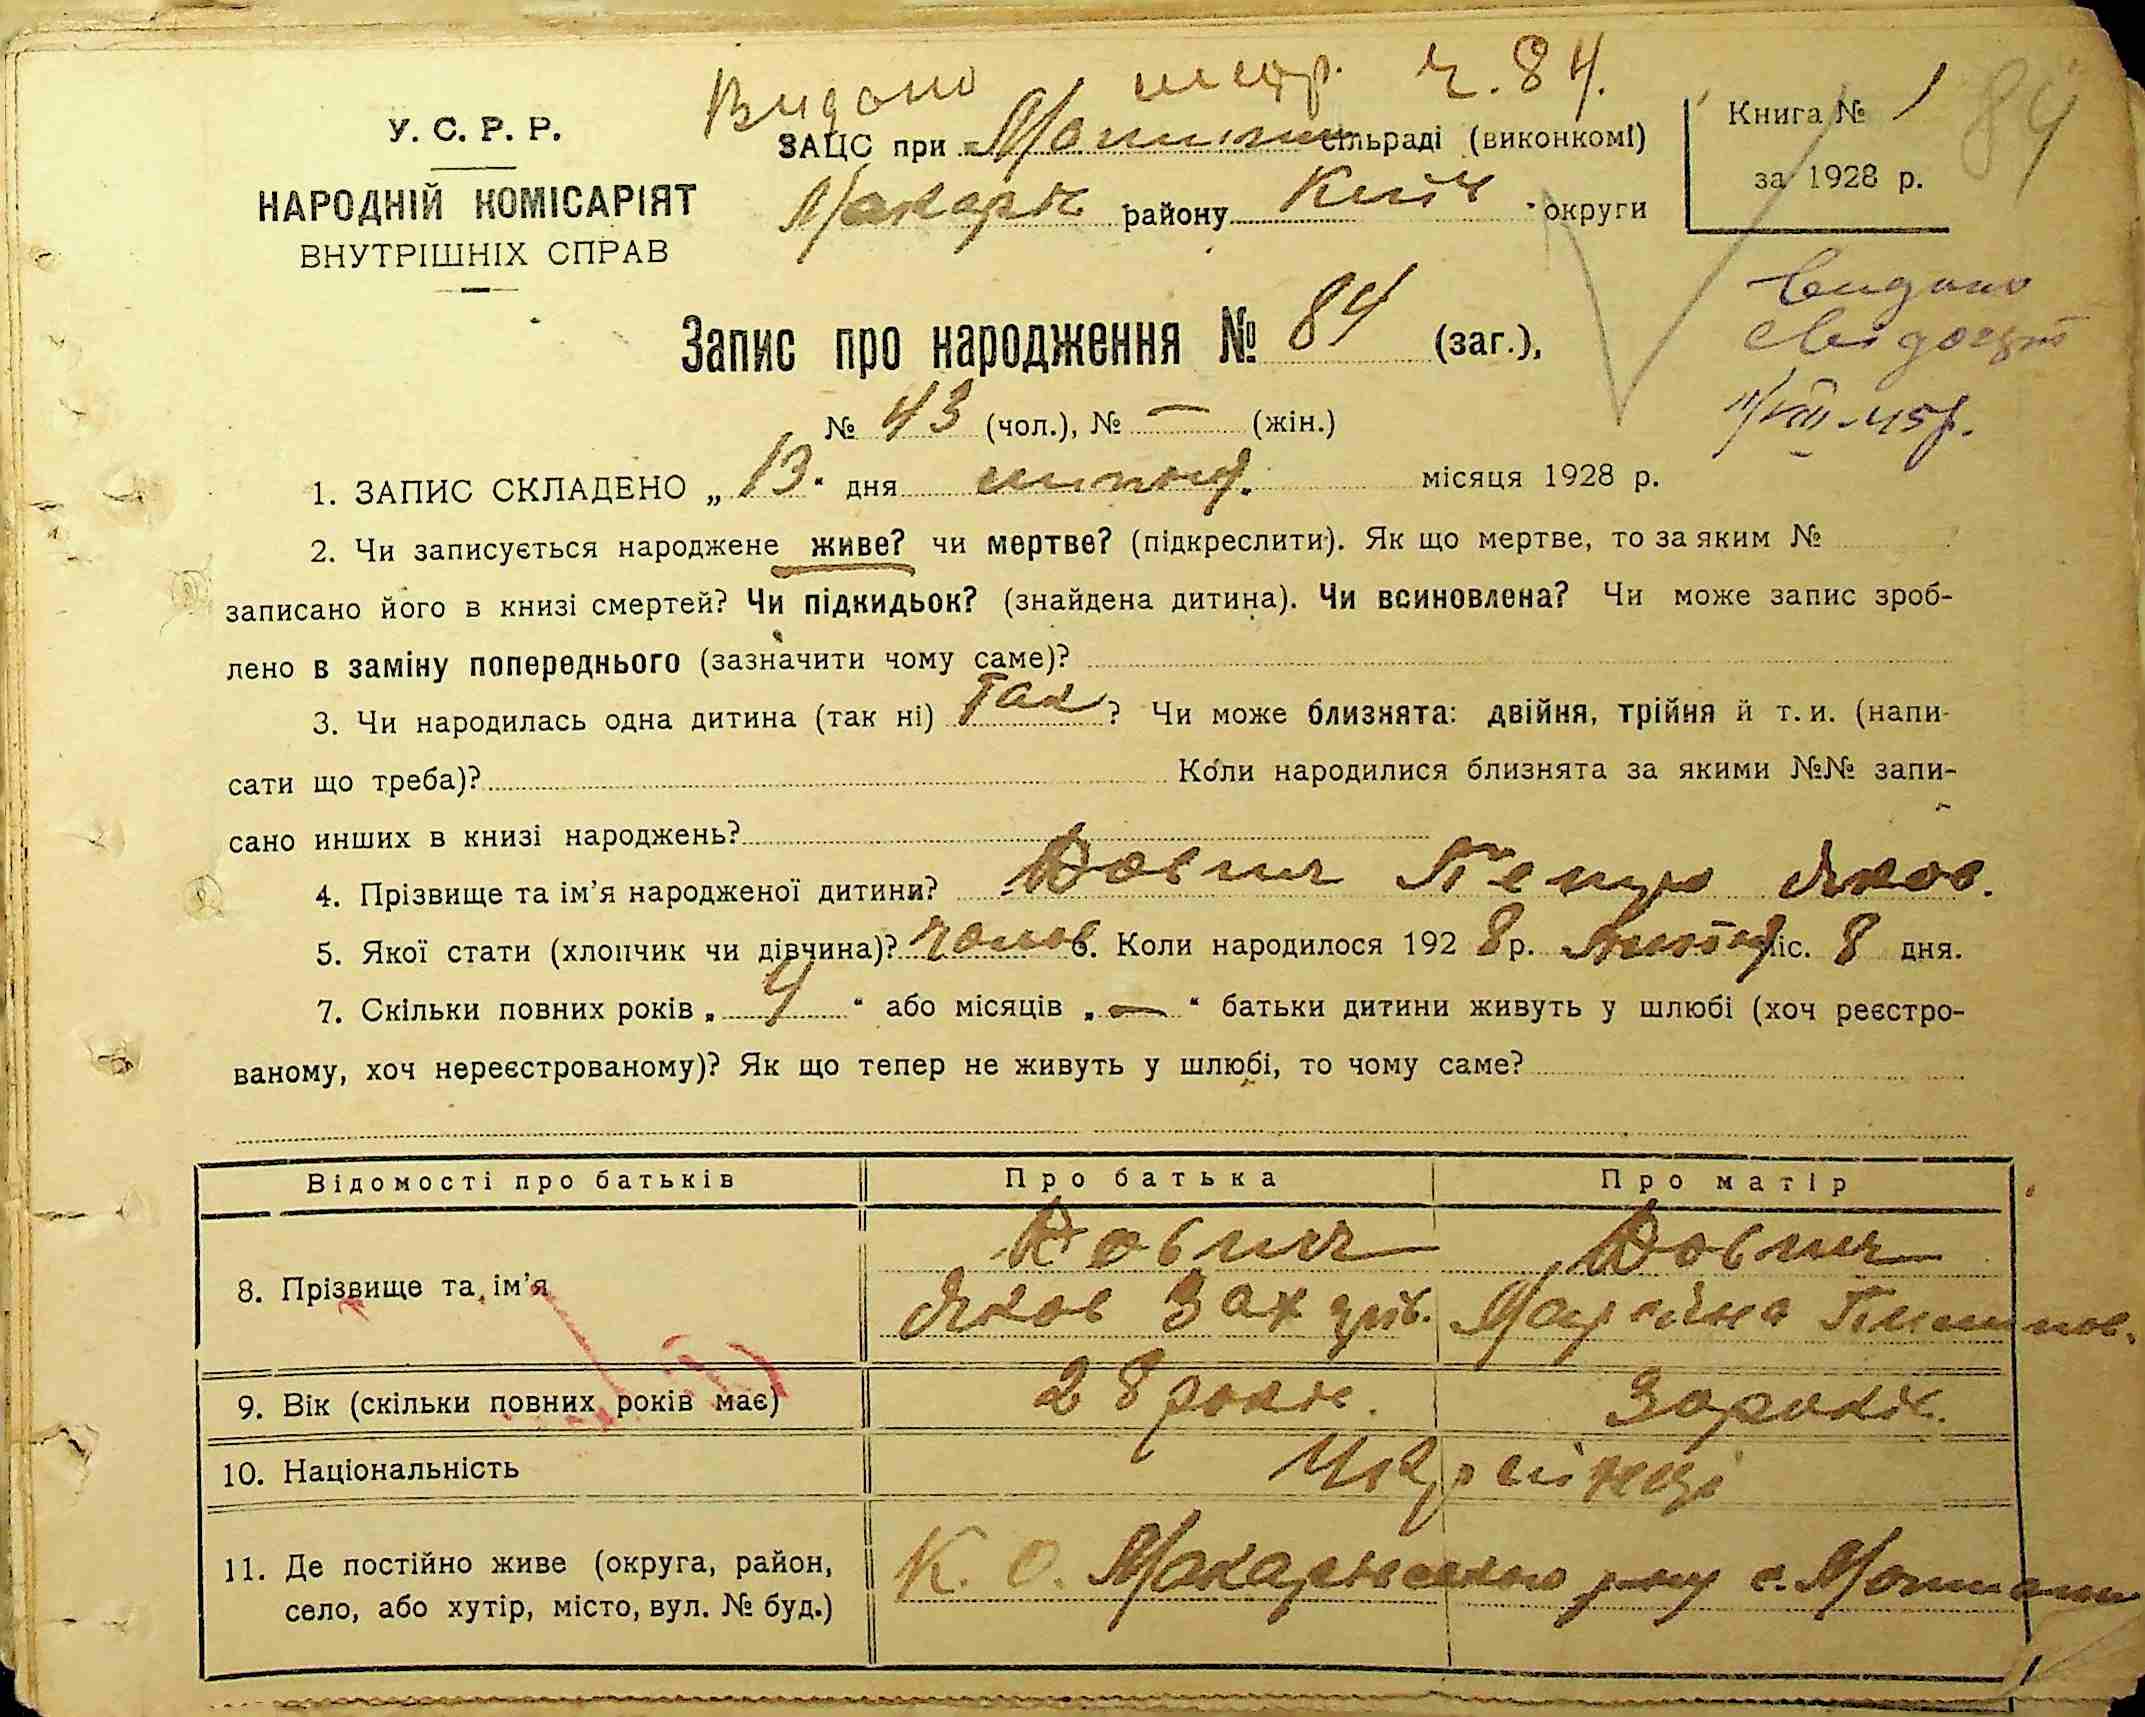 Видано метр. ч. 84.
У. С. Р. Р.
НАРОДНІЙ КОМІСАРІЯТ
ВНУТРІШНІХ СПРАВ
ЗАЦС при сільраді (виконкомі)
Макарів району Київ округи
Книга № 1
за 1928 р.
84
Видано
свідоцт
11/VIII-45р.
Запис про народження № 84 (заг.),
№ 43 (чол.), № — (жін.)
1. ЗАПИС СКЛАДЕНО „ 13 " дня липня місяця 1928 р.
2. Чи записується народжене живе? чи мертве? (підкреслити). Як що мертве, то за яким №
записано його в книзі смертей? Чи підкидьок? (знайдена дитина). Чи всиновлена? Чи може запис зроб-
лено в заміну попереднього (зазначити чому саме)?
3. Чи народилась одна дитина (так ні) Так ? Чи може близнята: двійня, трійня й т. и. (напи-
сати що треба)? Коли народилися близнята за якими №№ запи-
сано инших в книзі народжень?
4. Прізвище та ім'я народженої дитини? Довгич Петро Яков.
5. Якої стати (хлопчик чи дівчина)? чолов. Коли народилося 1928 р. міс. 8 дня.
7. Скільки повних років „ 4 " або місяців „ — " батьки дитини живуть у шлюбі (хоч реєстро-
ваному, хоч нереєстрованому)? Як що тепер не живуть у шлюбі, то чому саме?
Відомості про батьків Про батька Про матір
8. Прізвище та ім'я
Яков Захаров. Марійна
9. Вік (скільки повних років має) 28 років. 30 років.
10. Національність Українці
11. Де постійно живе (округа, район,
село, або хутір, місто, вул. № буд.)
К. О. Макарівського р-ну с.